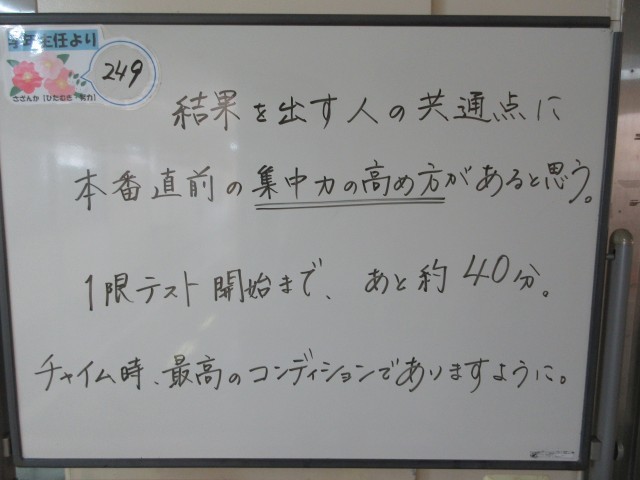 学年主任より
249
さざんか「ひたむき・努力」
結果を出す人の共通点に
本番直前の集中力の高め方があると思う。
1限テスト開始まで、あと約40分。
チャイム時、最高のコンディションでありますように。